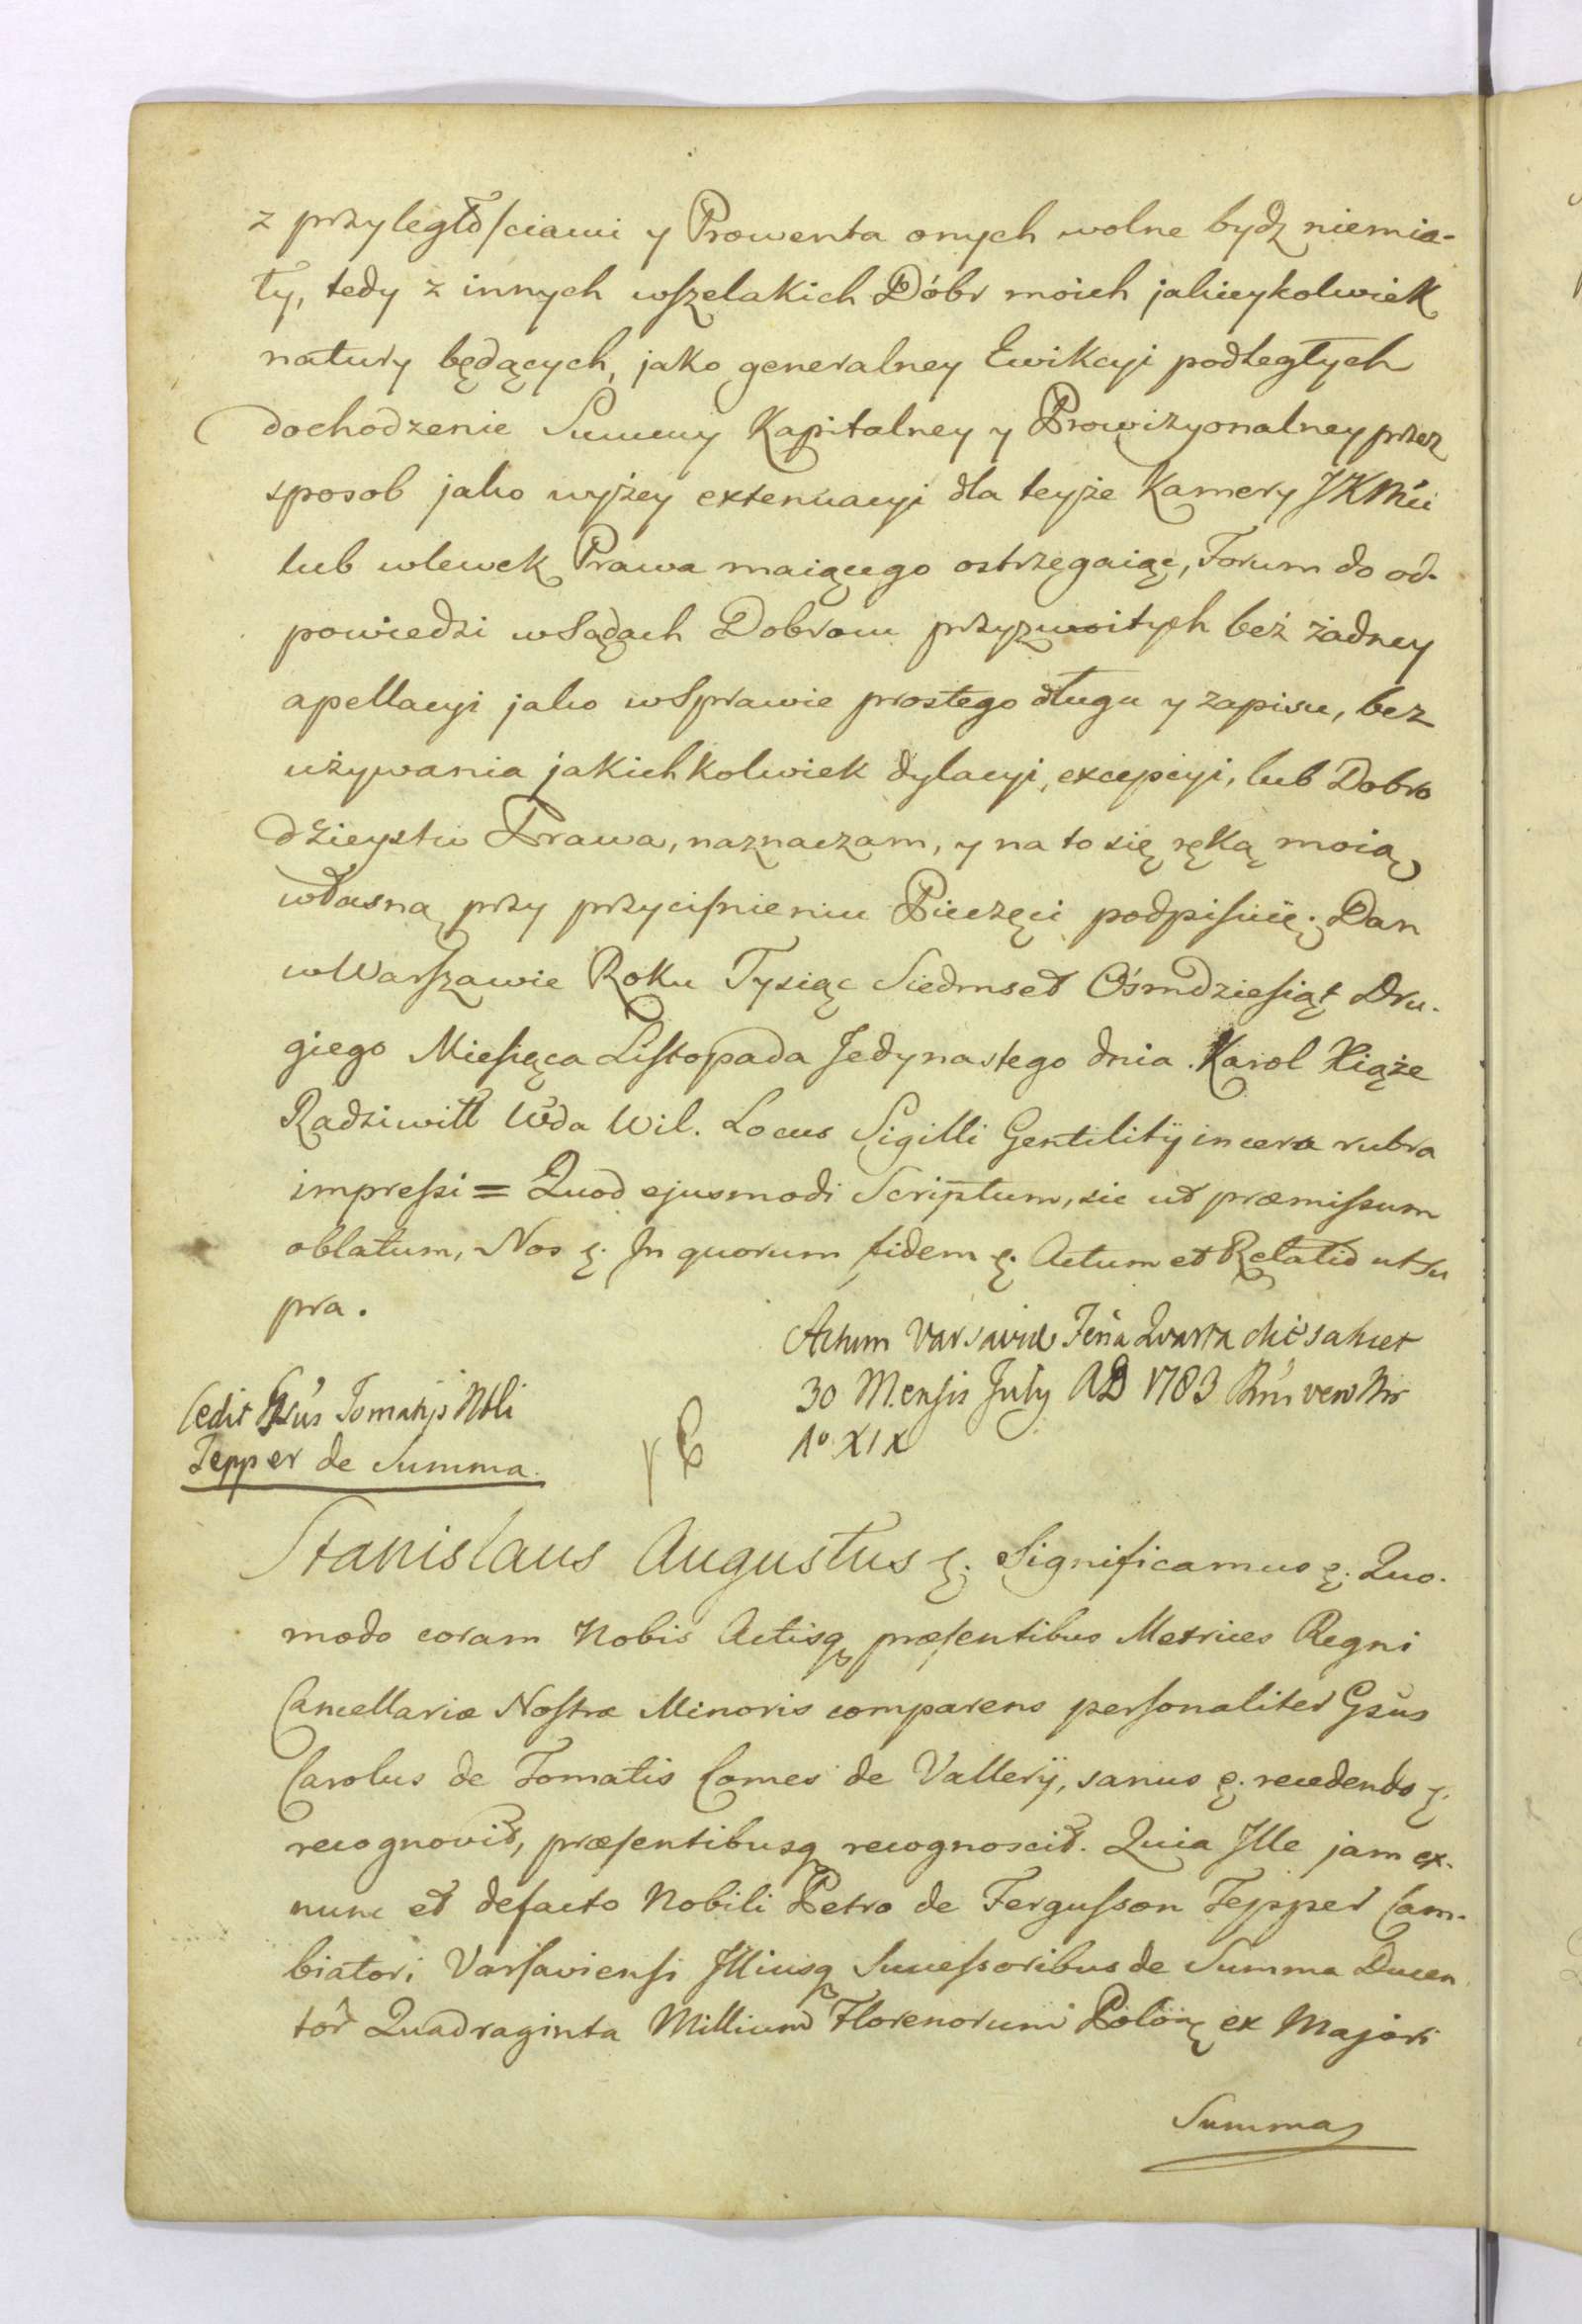 z przyległościami y Prowenta onych wolne bydz niemia-
ły, tedy z innych wszelakich Dóbr moich jakieykolwiek
natury będących, jako generalney Ewikcyi podległych
dochodzenie Summy Kapitalney y Prowizyonalney przez
sposob jako wyżey extenuacyi dla teyże Kamery JKMci
lub wlewek Prawa maiącego ostrzegaiąc, Forum do od-
powiedzi w Sądach Dobrom przyzwoitych beż żadney
apellacyi jako w Sprawie prostego długu y zapisu, bez
używania jakichkolwiek dylacyi, excepcyi, lub Dobro
dzieystw Prawa, naznaczam, y na to się ręką moią
własną przy przyciśnieniu Pieczęci podpisuię. Dan
w Warszawie Roku Tysiąc Siedmset Ośmdziesiąt Dru-
giego Miesiąca Listopada Jedynastego dnia. Karol Xiąże
Radziwiłł Wda Wil. Locus Sigilli Gentilitij in cera rubra
impressi = Quod ejusmodi Scriptum, sic ut præmissum
oblatum, Nos &. In quorum fidem &. Actum et Relatio ut su
pra.
Actum Varsaviæ Feria Quarta
30 Mensis July AD 1783
1º XIX
Cedit Gsus Tomatis Nbli
Tepper de Summa.
Stanislaus Augustus &. Significamus &. Quo-
modo coram Nobis Actisq præsentibus Metrices Regni
Cancellariæ Nostræ Minoris comparens personaliter Gsus
Carolus de Tomatis Comes de Vallery, sanus &. recedendo &.
recognovit, præsentibusq recognoscit. Quia Ille jam ex-
nunc et defacto Nobili Petro de Fergusson Tepper Cam-
biatori Varsaviensi Illiusq Successoribus de Summa Ducen
tor Quadraginta Millium Florenorum Polon ex Majori
Summa